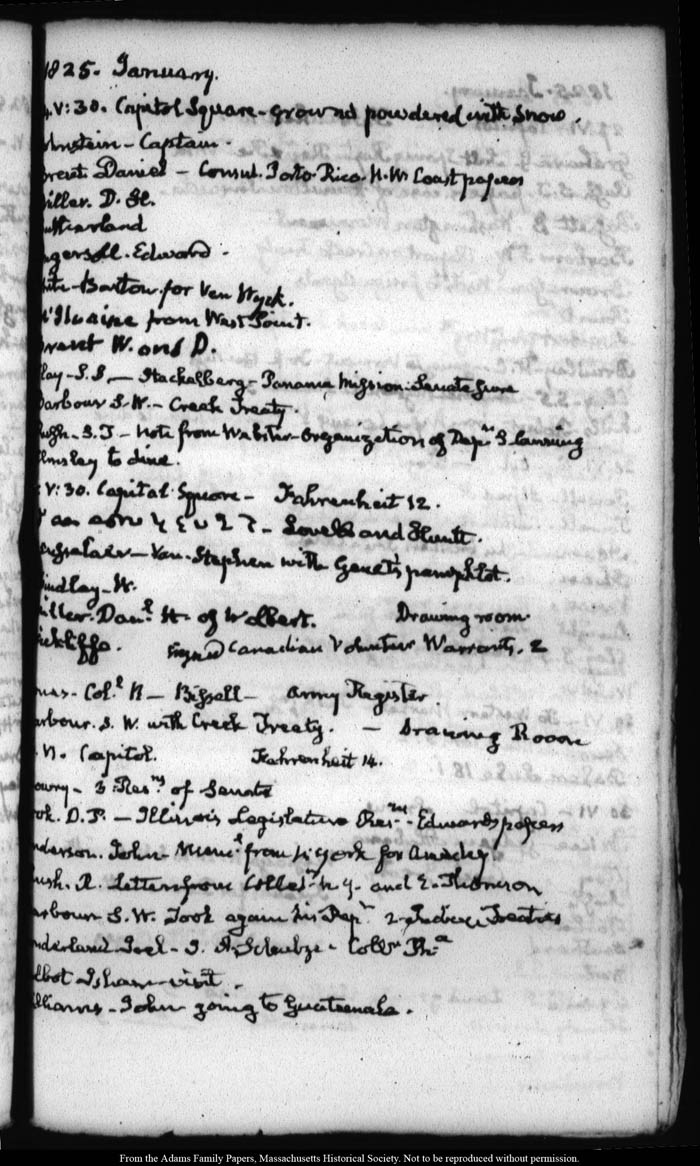 1825. January.
V:30. Capitol Square - ground powdered with Snow.
Captain.
Daniel - Consul. Porto Rico. N.W. Coast papers
iller. D. H.
utherland
gersoll. Edward.
Bartow for Van Wyck.
from West Point.
W. and D.
lay - S.S. - Stackelberg - Panama Mission: Senate
arbour S.W. - Creek Treaty.
S.J - Note from Webster - Organization of Dep.t
lmsley to dine.
V:30. Capitol Square - Fahrenheit 12.
Lovell and Hunt.
Van - Stephen with Genet's pamphlet.
indlay - W.
iller. Dan.l H. of Wolbert. Drawing room
ickliffe. Signed Canadian Volunteer Warrants. 2
Col.l N - Bissell - Army Register
arbour. S. W. with Creek Treaty. - Drawing Room
N. Capitol. Fahrenheit 14.
owry - 3 Res.ns of Senate
ok. D. P. - Illinois Legislature - Edwards papers
nderson. John - from N. York for
ush. R. Letters from and E. Thomson
arbour S. W. Took again his Rep.t 2 Treaties
Joel - Coll.r Ph.a
lbot Isham - visit.
lliams - John going to Guatemala.
From the Adams Family Papers, Massachusetts Historical Society. Not to be reproduced without permission.